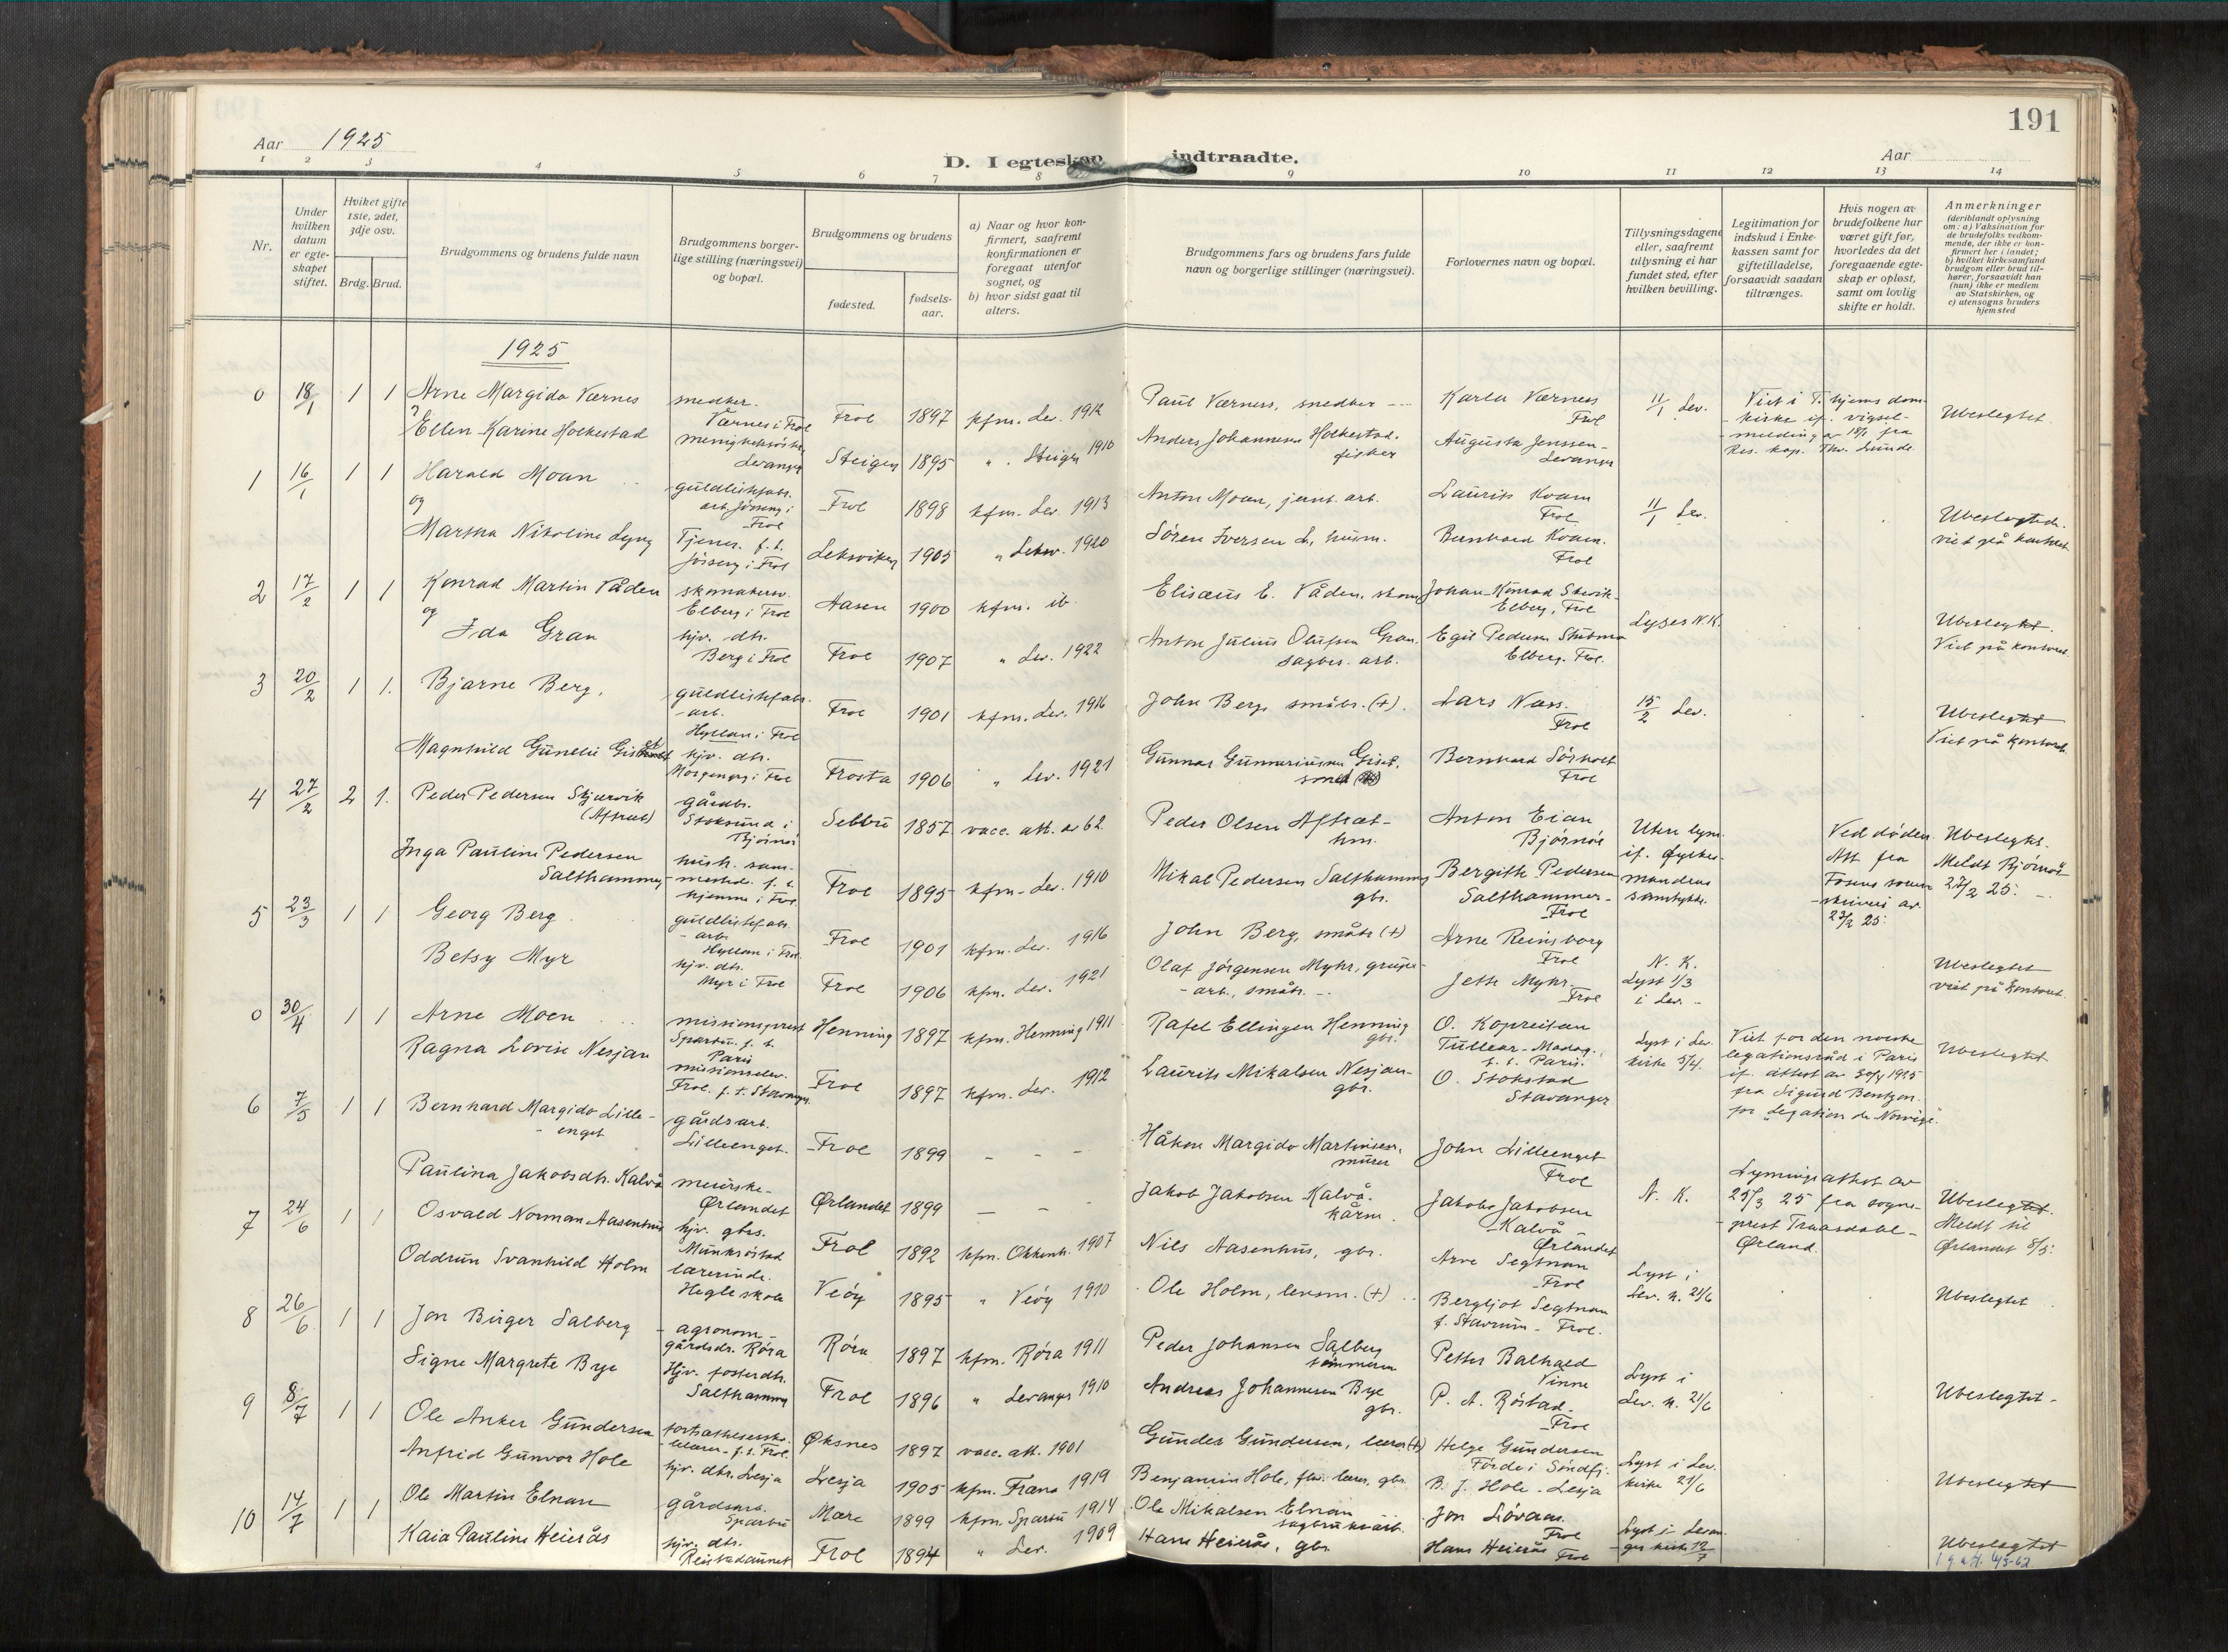 191
Aar 1925
D. I egteskap indtraadte.
Aar
1 2 3 4 5 6 7 8 9 10 11 12 13 14
Nr.
Under hvilken datum er egteskapet stiftet.
Hviket gifte 1ste, 2det, 3dje osv.
Brdg. Brud.
Brudgommens og brudens fulde navn
Brudgommens borgerlige stilling (næringsvei) og bopæl.
Brudgommens og brudens
fødested.
fødselsaar.
a) Naar og hvor konfirmert, saafremt konfirmationen er foregaat utenfor sognet, og
b) hvor sidst gaat til alters.
Brudgommens fars og brudens fars fulde navn og borgerlige stillinger (næringsvei).
Forlovernes navn og bopæl.
Tillysningsdagene eller, saafremt tillysning ei har fundet sted, efter hvilken bevilling.
Legitimation for indskud i Enkekassen samt for giftetilladelse, forsaavidt saadan tiltrænges.
Hvis nogen av brudefolkene har været gift før, hvorledes da det foregaaende egteskap er opløst, samt om lovlig skifte er holdt.
Anmerkninger
(deriblandt oplysning om: a) Vaksination for de brudefolks vedkommende, der ikke er konfirmert her i landet; b) hvilket kirkesamfund brudgom eller brud tilhører, forsaavidt han (hun) ikke er medlem av Statskirken, og c) utensogns bruders hjemsted
1925
0 18/1 1 1 Arne Margido Værnes snedker. Værnes i Frol Frol 1897 kfm. Lev. 1912 Paul Værness, snedker Karla Værness Frol 11/1 Lev. Viet i T.hjems domkirke if. vigselmelding av 18/1 fra Res. kap. Thv. Lunde. Ubeslegtet
Ellen Karine Holkestad Levanger Steigen 1895 " Steigen 1910 Anders Johannesen Holkestad. fisker Augusta Jenssen Levanger
1 16/1 1 1 Harald Moan guldlistfabr. arb. Jøsseng i Frol Frol 1898 kfm. Lev 1913 Anton Moan, jernb. arb. Laurits Kvam Frol 11/1 Lev. Ubeslegtede. viet på kontoret
og
Martha Nikoline Lyng Tjener. f. t. Jøsseng i Frol Leksviken 1905 " Leksv. 1920 Søren Iversen L, husm. Bernhard Kvam. Frol
2 17/2 1 1 Konrad Martin Våden skomakersv. Elberg i Frol Aasen 1900 kfm. ib. Elisæus E. Våden, skom Johan Konrad Skevik Elberg, Frol Lyses N.K. Ubeslegtet. Viet på kontoret.
og
Ida Gran hjv. dtr. Berg i Frol Frol 1907 " Lev. 1922 Anton Julius Olufsen Gran. sagbr. arb. Egil Pedersen Elberg. Frol.
3 20/2 1 1. Bjarne Berg. guldlistfabr. arb. Hyllan i Frol Frol 1901 kfm. Lev. 1916 John Berg småbr. (+). Lars Næss. Frol 15/2 Lev. Ubeslegtet Viet på kontoret.
Magnhild Gunelie hjv. dtr. Frosta 1906 " Lev. 1921 Gunnar Gunneriussen Giset. smed Bernhard Sørholt Frol
4 27/2 2 1. Peder Pedersen Skjærvik (Aftret) gårdbr. Stoksund i Bjørnør Selbu 1857 vacc. att. av 62 Peder Olsen Aftræt hm. Anton Eian Bjørnør Uten lysn. if. fylkesmandens samtykke. Ved døden. Att. fra Fosens sorenskriveri av 23/2 25. Ubeslegtet. Meldt Bjørnør 27/2 25.
Inga Pauline Pedersen Salthammer hjemme i Frol Frol 1895 kfm. Lev. 1910 Mikal Pedersen Salthammer gbr. Bergith Pedersen Salthammer Frol
5 23/3 1 1 Georg Berg guldlistefabr. arb. Hyllan i Frol. Frol 1901 kfm. Lev. 1916 John Berg, småbr (+) Arne Reinsborg Frol N. K. Lyst 1/3 i Lev. Ubeslegtet viet på kontoret.
Betsy Myr hjv. dtr. Myr i Frol Frol 1906 kfm. Lev. 1921 Olaf Jørgensen Myhr, grubearb., småbr. Jette Myhr. Frol
0 30/4 1 1 Arne Moen missionsprest Sparbu. f. t. Paris Henning 1897 kfm. Henning 1911 Rafel Ellingen Henning gbr. O. Kopreitan Tullear - Madag. f. t. Paris. Lyst i Lev. kirke 5/4. Viet for den norske legationsråd i Paris if. attest av 30/4 1925 fra Sigurd Bentzon. for "Legation de Norvège". Ubeslegtet
Ragna Lovise Nesjan missionselev. Frol. f. t. Stavanger Frol 1897 kfm. Lev. 1912 Laurits Mikalsen Nesjan gbr. O. Stokstad Stavanger
6 7/5 1 1 Bernhard Margido Lilleenget gårdsarb. Lilleenget. Frol 1899 - - - Håkon Margido Martinsen, murer John Lilleenget Frol N. K. Lysningsattest av 25/3 25 fra sogneprest Traasdahl Ørland. Ubeslegtet. Meldt til Ørlandet 8/5.
Paulina Jakobsdtr. Kalvå meierske Ørlandet Ørlandet 1899 - - - Jakob Jakobsen Kalvå. kårm. Jakob Jakobsen Kalvå Ørlandet
7 24/6 1 1 Osvald Norman Aasenhus hjv. gbrs. Munkrøstad Frol 1892 kfm. Okkenh. 1907 Nils Aasenhus, gbr. Arne Segtnan Frol Lyst i Lev. k. 21/6 Ubeslegtet
Oddrun Svanhild Holm lærerinde. Hegle skole Veøy 1895 " Veøy 1910 Ole Holm, lensm. (+) Bergljot Segtnan f. Stavrum - Frol.
8 26/6 1 1 Jon Birger Salberg agronom - gårdsdr. Røra Røra 1897 kfm. Røra 1911 Peder Johansen Salberg tømmerm Petter Balhald Vinne Lyst i Lev. k. 21/6 Ubeslegtet -
Signe Margrete Bye Hjv. fosterdtr. Salthammer Frol 1896 " Levanger 1910 Andreas Johannesen Bye gbr. P. A. Røstad. Frol
9 8/7 1 1 Ole Anker Gundersen fortsættelsessk.-lærer - f. t. Frol. Øksnes 1897 vacc. att. 1901 Gunder Gundersen, lærer (+) Helge Gundersen Førde i Søndfj. Lyst i Lev. kirke 21/6 Ubeslegtet
Anfrid Gunvor Hole hjv. dtr. Lesja Lesja 1905 kfm. Fræna 1919 Benjamin Hole, fhv. lærer, gbr. B. J. Hole - Lesja
10 14/7 1 1 Ole Martin Elnan gårdsarb. Sparbu Mære 1899 kfm. Sparbu 1914 Ole Mikalsen Elnan sagbruksarb. Jon Løvaas. Frol Lyst i Levanger kirke 12/7 Ubeslegtet
Kaia Pauline Heierås hjv. dtr. Reistadaunet Frol 1894 " Lev. 1909 Hans Heierås, gbr. Hans Heierås Frol